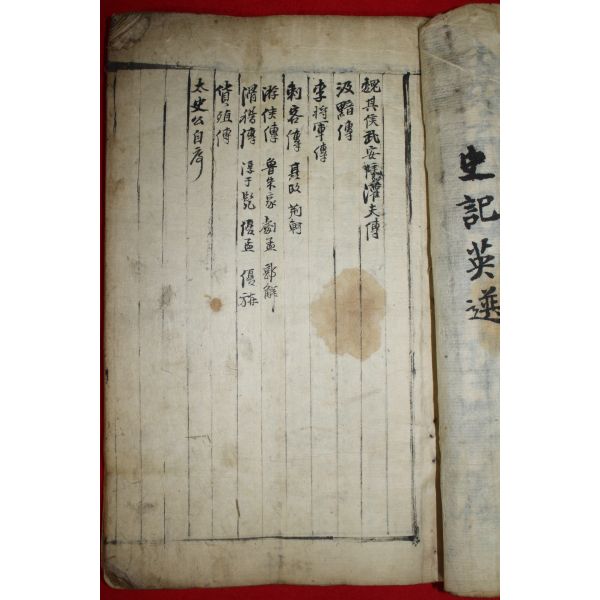 史記英選
魏其侯武安侯灌夫傳
汲黯傳
李將軍傳
刺客傳 聶政 荊軻
游俠傳 魯朱家 劇孟 郭解
滑稽傳 淳于髡 優孟 優旃
貨殖傳
太史公自序